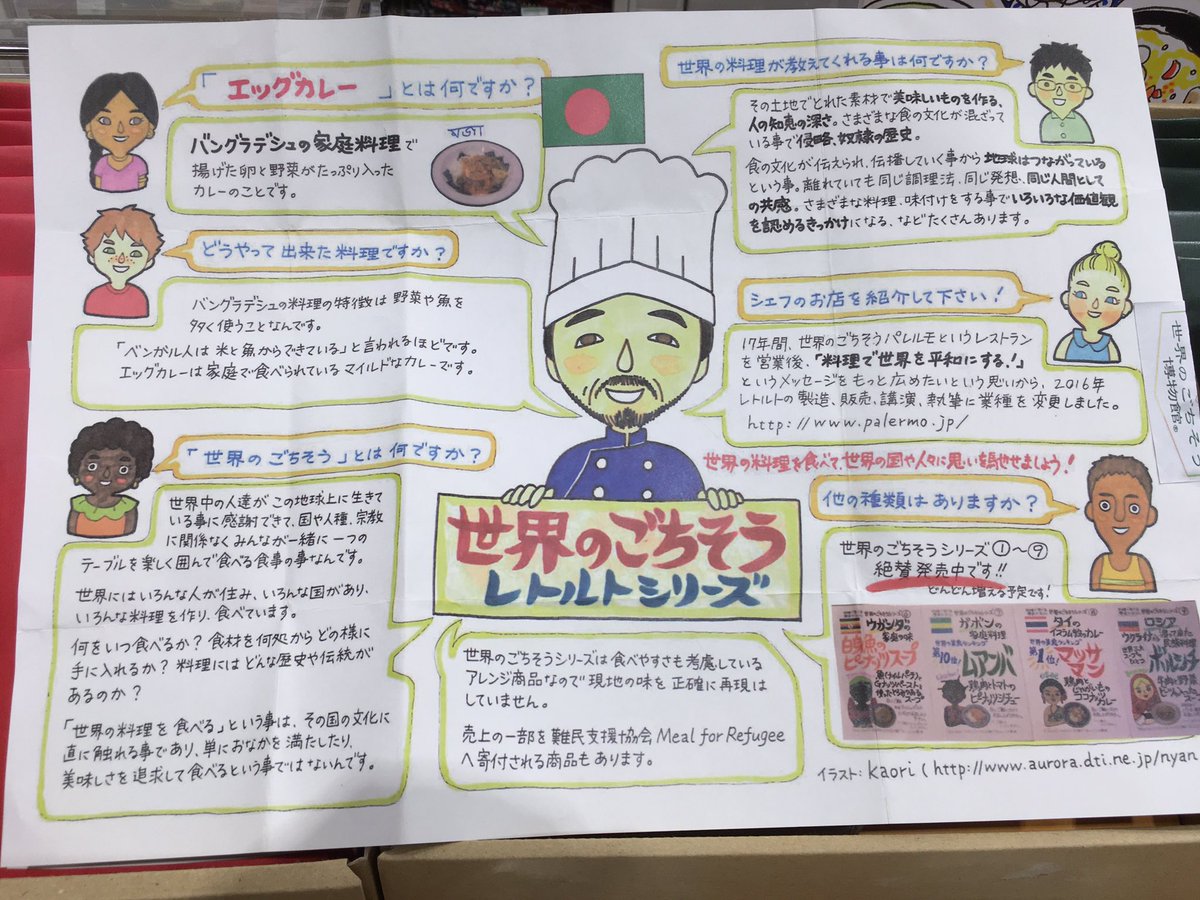 「エッグカレー」とは何ですか?
バングラデシュの家庭料理で
揚げた卵と野菜がたっぷり入った
カレーのことです。
মজা
どうやって出来た料理ですか?
バングラデシュの料理の特徴は野菜や魚を
多く使うことなんです。
「ベンガル人は米と魚からできている」と言われるほどです。
エッグカレーは家庭で食べられているマイルドなカレーです。
「世界のごちそう」とは何ですか?
世界中の人達がこの地球上に生きて
いる事に感謝できて、国や人種、宗教
に関係なくみんなが一緒に一つの
テーブルを楽しく囲んで食べる食事の事なんです。
世界にはいろんな人が住み、いろんな国があり、
いろんな料理を作り、食べています。
何をいつ食べるか?食材を何処からどの様に
手に入れるか?料理にはどんな歴史や伝統が
あるのか?
「世界の料理を食べる」という事は、その国の文化に
直に触れる事であり、単におなかを満たしたり、
美味しさを追求して食べるという事ではないんです。
世界の料理が教えてくれる事は何ですか?
その土地でとれた素材で美味しいものを作る、
人の知恵の深さ。さまざまな食の文化が混ざって
いる事で侵略、奴隷の歴史。
食の文化が伝えられ、伝播していく事から地球はつながっている
という事。離れていても同じ調理法、同じ発想、同じ人間として
の共感。さまざまな料理、味付けをする事でいろいろな価値観
を認めるきっかけになる、などたくさんあります。
シェフのお店を紹介して下さい!
17年間、世界のごちそうパレルモというレストラン
を営業後、「料理で世界を平和にする!」
というメッセージをもっと広めたいという思いから、2016年
レトルトの製造、販売、講演、執筆に業種を変更しました。
http://www.palermo.jp/
世界の料理を食べて、世界の国や人々に思いを馳せましょう!
他の種類はありますか?
世界のごちそうシリーズ①〜⑨
絶賛発売中です!!
どんどん増える予定です!
世界のごちそう
レトルトシリーズ
世界のごちそうシリーズは食べやすさも考慮している
アレンジ商品なので現地の味を正確に再現は
していません。
売上の一部を難民支援協会 Meal for Refugee
へ寄付される商品もあります。
ウガンダの
家庭の味
白身魚の
ピーナッツスープ
ガボンの
家庭料理
第10位!
ムアンバ
鶏肉とトマトの
ピーナッツシチュー
タイの
イスラム教のカレー
第1位!
マッサ
マン
鶏肉と
じゃがいもの
ココナッツ
カレー
ロシア
ウクライナ
ボルシチ
牛肉と野菜
イラスト:kaori(http://www.aurora.dti.ne.jp/nyan
世界のごちそう
博物館。